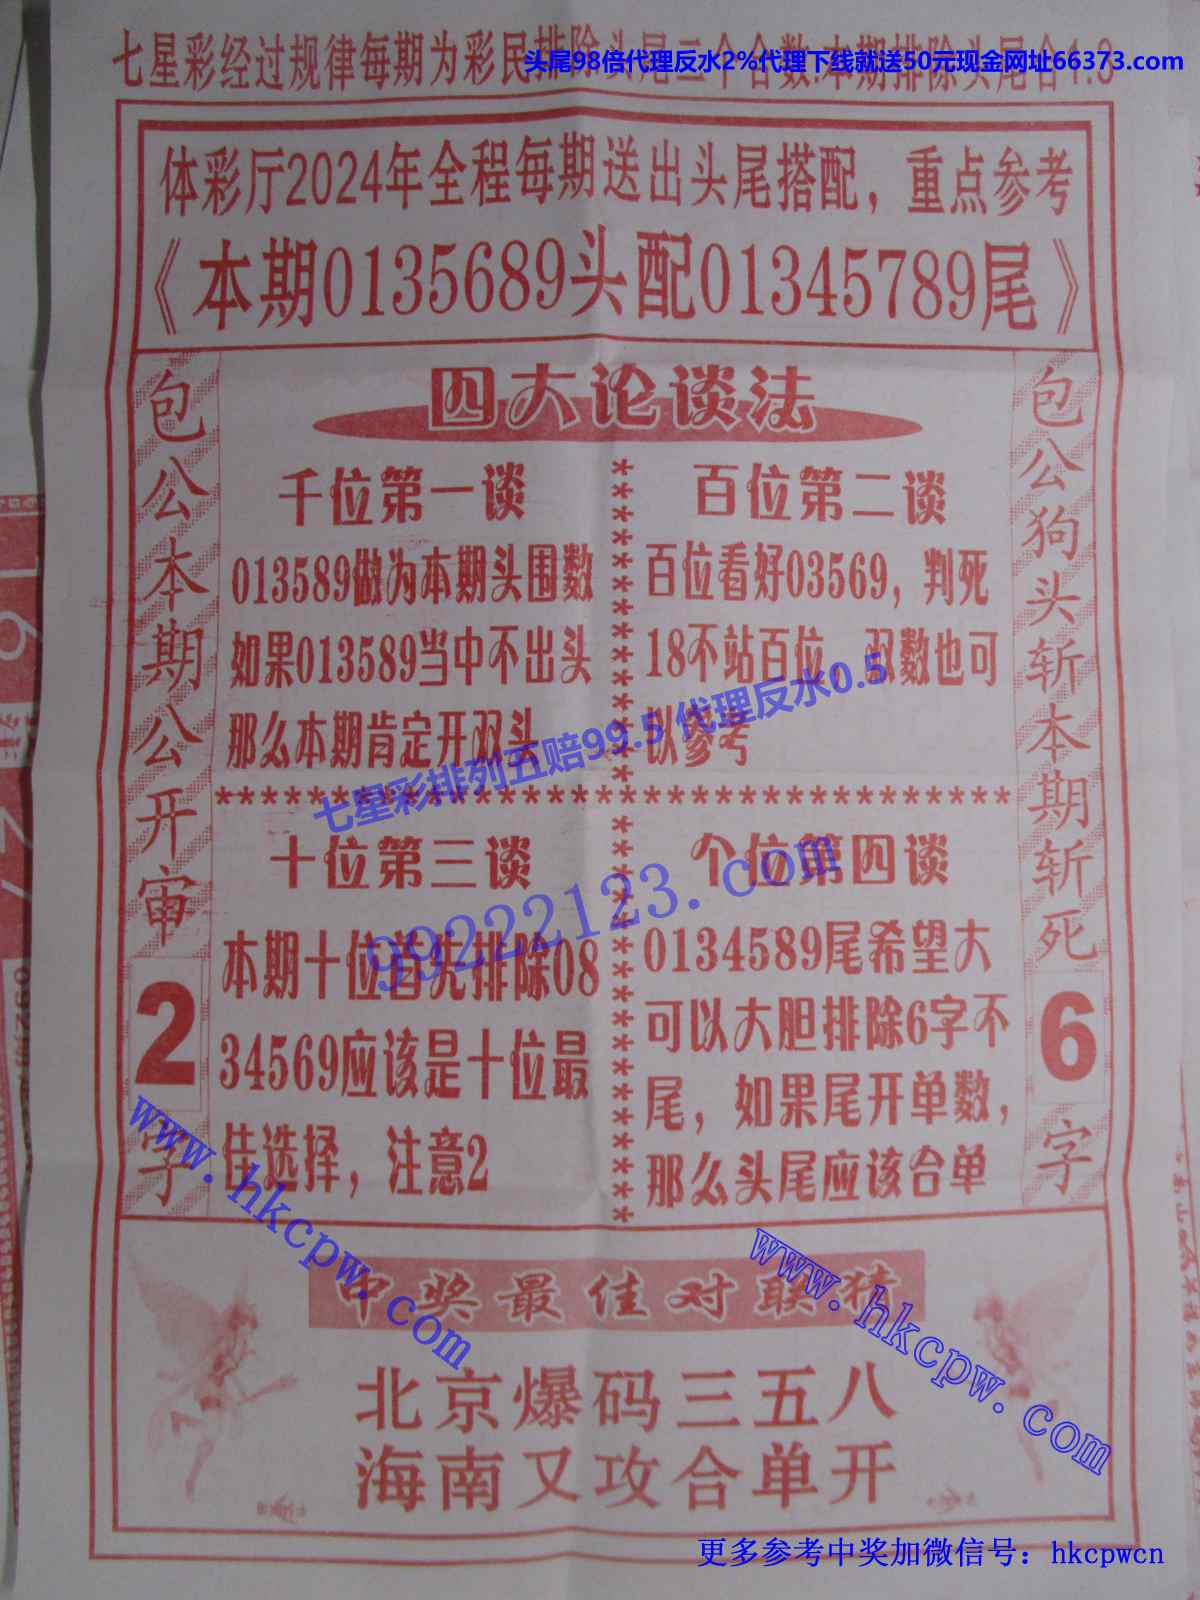 头尾98倍代理反水2%代理下线就送50元现金网址66373.com
七星彩经过规律每期为彩民排除头尾二个合数:本期排除头尾合1.3
体彩厅2024年全程每期送出头尾搭配，重点参考
《本期0135689头配01345789尾》
包公本期公开审2字
四大论谈法
千位第一谈
013589做为本期头围数
如果013589当中不出头
那么本期肯定开双头
百位第二谈
百位看好03569，判死
18不站百位，双数也可
以参考
七星彩排列五赔99.5 代理反水0.5
十位第三谈
本期十位首先排除08
34569应该是十位最
佳选择，注意2
个位第四谈
0134589尾希望大
可以大胆排除6字不
尾，如果尾开单数，
那么头尾应该合单
99222123.com
包公狗头斩本期斩死6字
www.hkcpw.com
www.hkcpw.com
中奖最佳对联猜
北京爆码三五八
海南又攻合单开
更多参考中奖加微信号：hkcpwcn